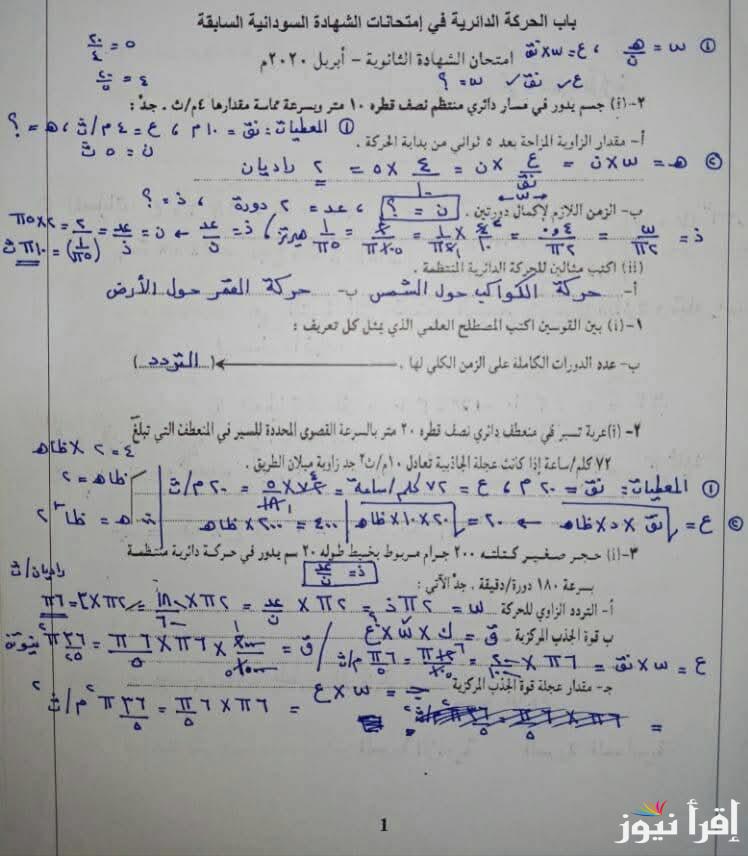 باب الحركة الدائرية في إمتحانات الشهادة السودانية السابقة
امتحان الشهادة الثانوية – أبريل ٢٠٢٠م
① هـ/ن = س ، ع = س×نق
٢٠/٤ = ٥
ع✓ نق✓ س = ؟
٢٠/٥ = ٤
٢–(i) جسم يدور في مسار دائري منتظم نصف قطره ١٠ متر وبسرعة مماسة مقدارها ٤م/ث . جد:
① المعطيات: نق = ١٠م ، ع = ٤م/ث ، هـ = ؟
أ– مقدار الزاوية المزاحة بعد ٥ ثواني من بداية الحركة .
ن = ٥ ث
② هـ = س×ن = ع/نق × ن = ٤/١٠ × ٥ = ٢ راديان
ب– الزمن اللازم لإكمال دورتين .
ن = ؟ ، عد = ٢ دورة ، ذ = ؟
(ii) اكتب مثالين للحركة الدائرية المنتظمة .
أ– حركة الكواكب حول الشمس ب– حركة القمر حول الأرض
١–(i) بين القوسين اكتب المصطلح العلمي الذي يمثل كل تعريف :
ب– عدد الدورات الكاملة على الزمن الكلي لها . (التردد)
٢– (i) عربة تسير في منعطف دائري نصف قطره ٢٠ متر بالسرعة القصوى المحددة للسير في المنعطف التي تبلغ
٤ = ٢ × ظاهـ
٧٢ كلم/ساعة إذا كانت عجلة الجاذبية تعادل ١٠م/ث٢ جد زاوية ميلان الطريق .
ظاهـ = ٢
① المعطيات: نق = ٢٠م ، ع = ٧٢ كلم/ساعة = ٥×٧٢/١٨ = ٢٠م/ث
② ع = نق × د × ظاهـ ← ٢٠ = ٢٠×١٠×ظاهـ
٤٠٠ = ٢٠٠ × ظاهـ
٣–(i) حجر صغير كتلته ٢٠٠ جرام مربوط بخيط طوله ٢٠ سم يدور في حركة دائرية منتظمة
ذ = عد/ن
راديان/ث
بسرعة ١٨٠ دورة/دقيقة . جد الآتي :
أ– التردد الزاوي للحركة س = ٢πذ = ٢π × عد/ن = ٢π × ١٨٠/٦٠ = ٢π×٣ = ٦π
ب قوة الجذب المركزية ق = ك × س × ع
ع = س × نق = ٦π × ٢٠/١٠٠ = ٦π/٥ م/ث
نيوتة
جـ– مقدار عجلة قوة الجذب المركزية جـ = س × ع = ٦π × ٦π/٥ = ٣٦π²/٥ م/ث²
1
إقرأ نيوز